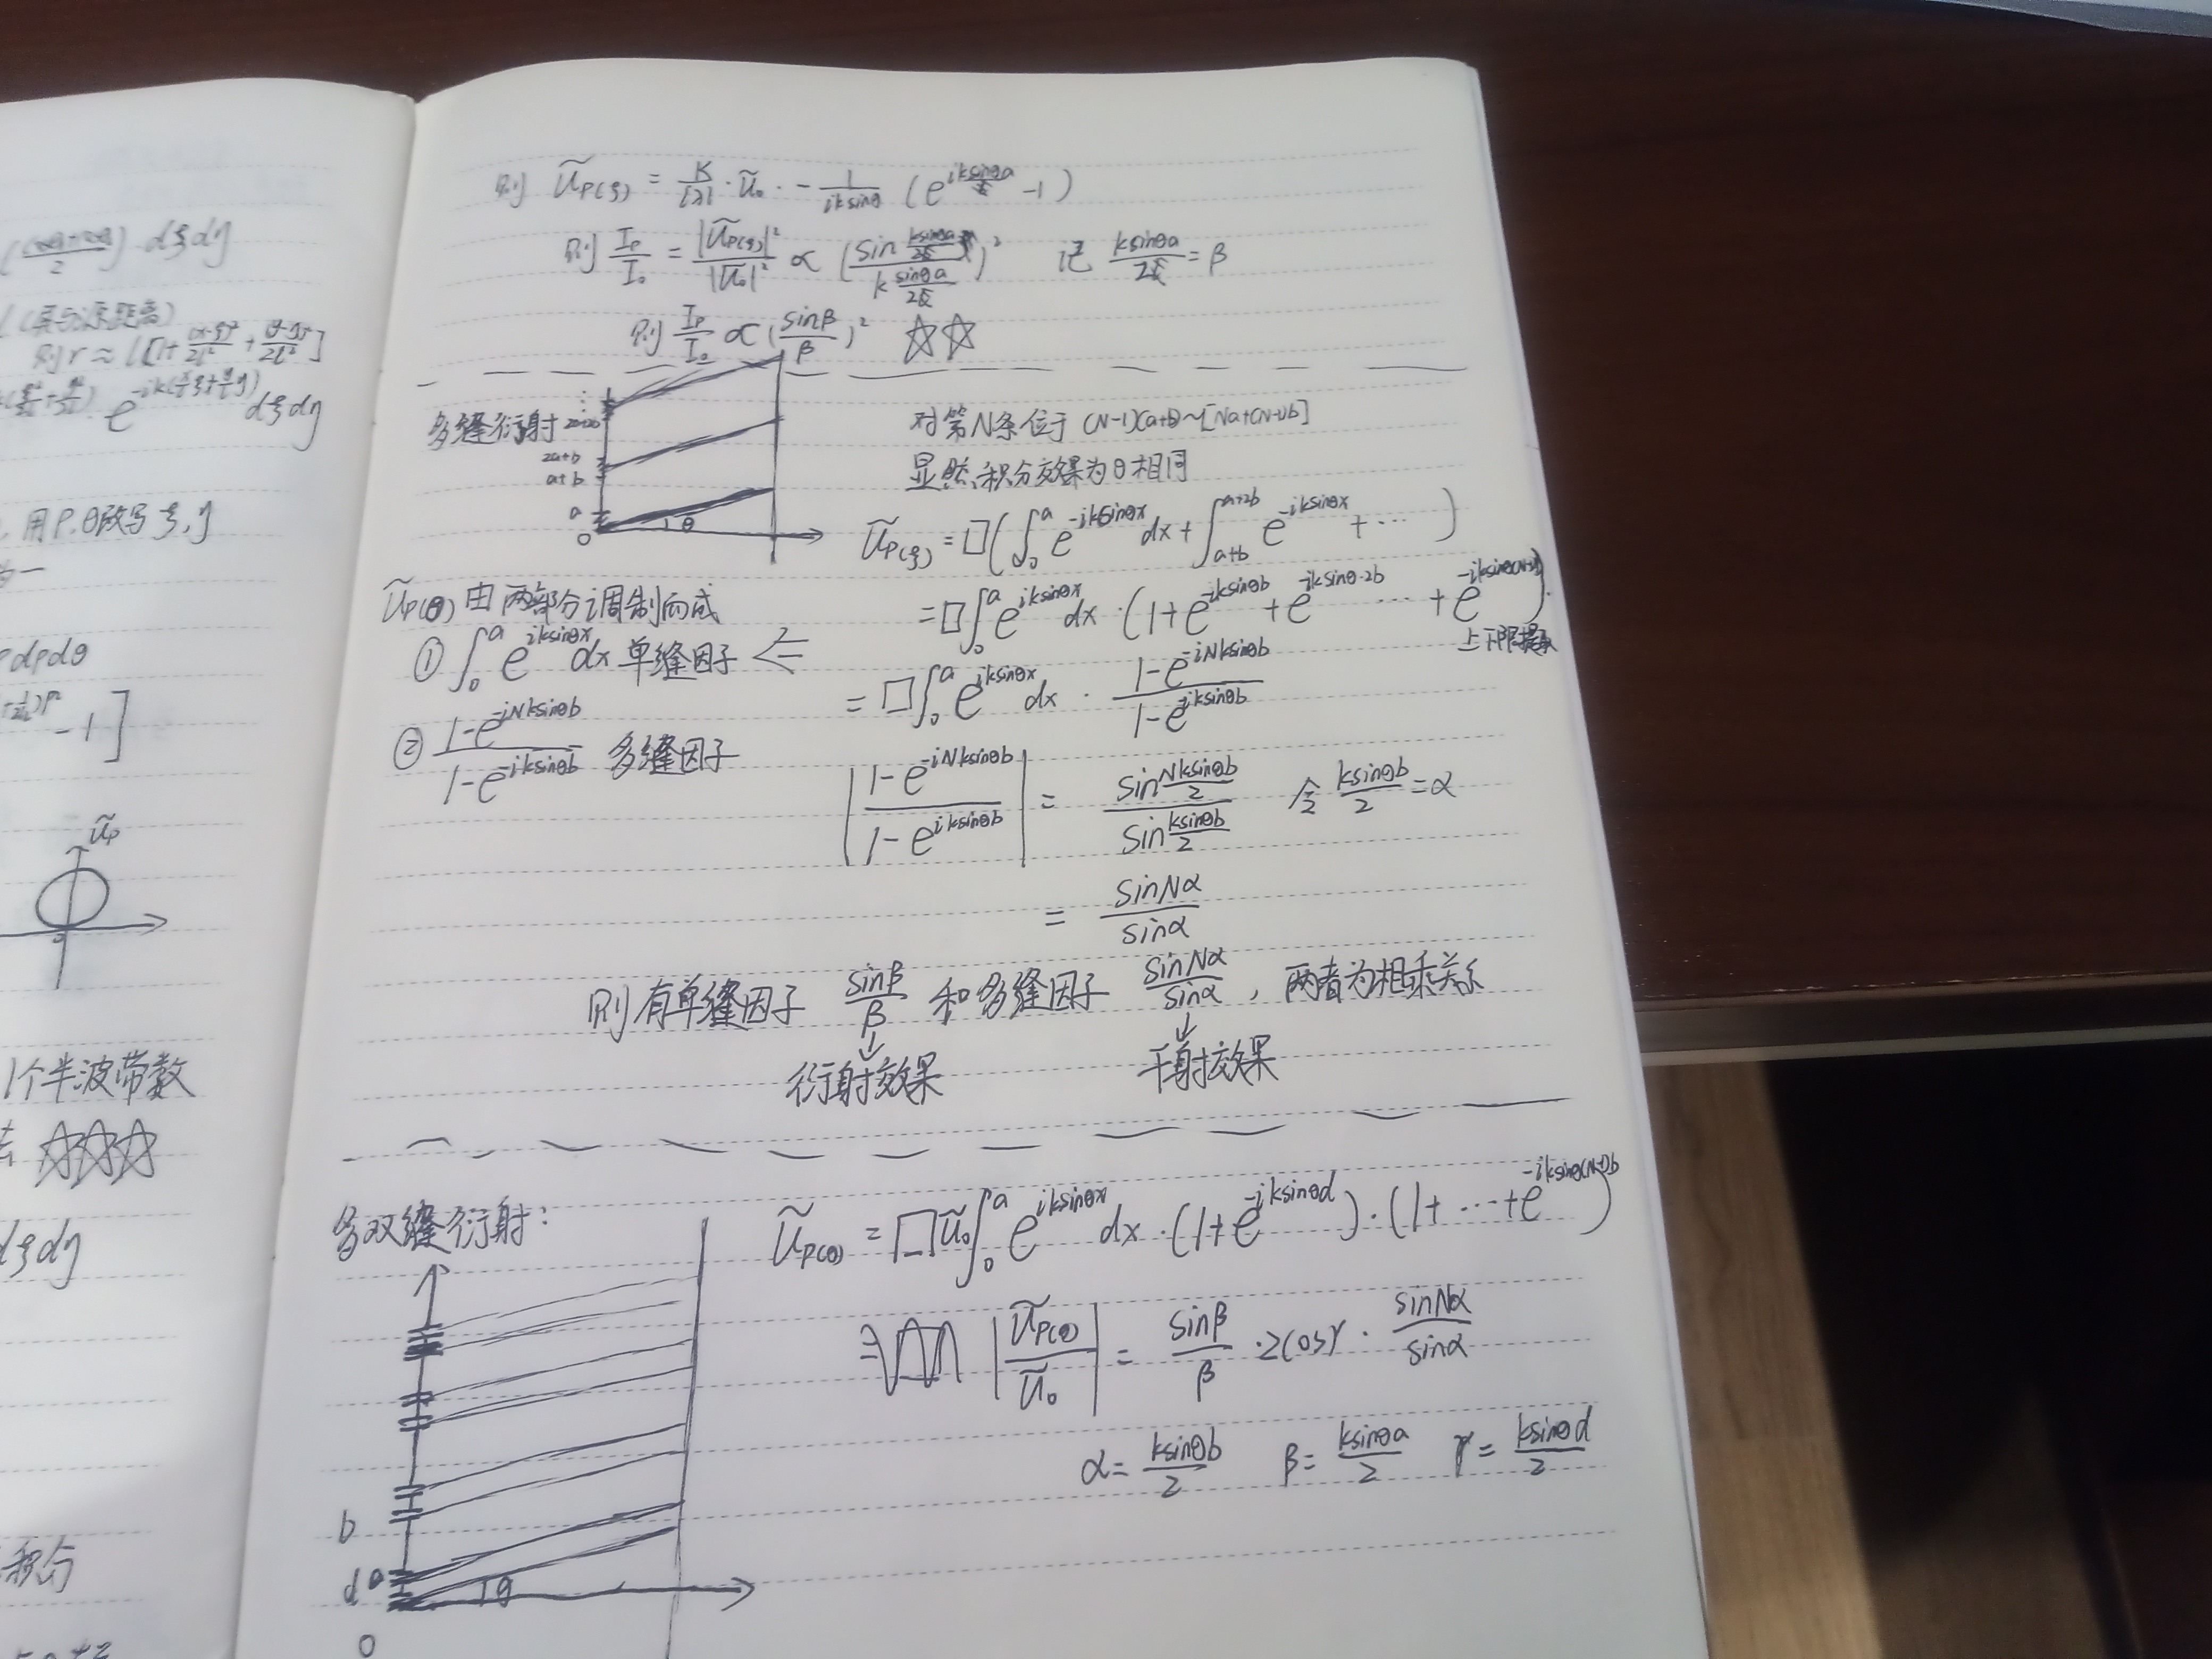 (cosθ+cosθ)/2) dξdη
l (屏与源距离)
则 r ≈ l[1+ (x-ξ)²/2l² + (y-η)²/2l²]
e^{-ik(x/l ξ+y/l η)} dξdη
用ρ.θ改写ξ,η
ρdρdθ
-1]
Ũp
1个半波带数
dξdη
积分
则 Ũp(ξ) = K/[λ] · Ũ₀ · - 1/(iksinθ) (e^{iksinθa} -1)
则 Ip/I₀ = |Ũp(ξ)|²/|Ũ₀|² ∝ (sin(ksinθa/2)/(k sinθa/2))² 记 ksinθa/2 = β
则 Ip/I₀ ∝ (sinβ/β)² ☆☆
多缝衍射
2a+b
a+b
a
0
θ
对第N条位于 (N-1)(a+b)~[Na+(N-1)b]
显然,积分效果为θ相同
Ũp(ξ) = □(∫₀^a e^{-iksinθx} dx + ∫_{a+b}^{a+2b} e^{-iksinθx} + ⋯ )
= □∫₀^a e^{iksinθx} dx · (1+e^{-iksinθb} + e^{-iksinθ·2b} ⋯ + e^{-iksinθ(N-1)b})
上下限提取
= □∫₀^a e^{iksinθx} dx · (1-e^{-iNksinθb})/(1-e^{-iksinθb})
Ũp(θ) 由两部分调制而成
① ∫₀^a e^{iksinθx} dx 单缝因子 ⇐
② (1-e^{-iNksinθb})/(1-e^{-iksinθb}) 多缝因子
|(1-e^{-iNksinθb})/(1-e^{iksinθb})| = sin(Nksinθb/2)/sin(ksinθb/2) 令 ksinθb/2 = α
= sinNα/sinα
则有单缝因子 sinβ/β 和多缝因子 sinNα/sinα , 两者为相乘关系
↓ ↓
衍射效果 干射效果
多双缝衍射:
Ũp(θ) = □Ũ₀∫₀^a e^{iksinθx} dx · (1+e^{-iksinθd}) · (1+ ⋯ +e^{-iksinθ(N-1)b})
|Ũp(θ)/Ũ₀| = sinβ/β · 2cosγ · sinNα/sinα
α= ksinθb/2 β= ksinθa/2 γ= ksinθd/2
b
d a
θ
0